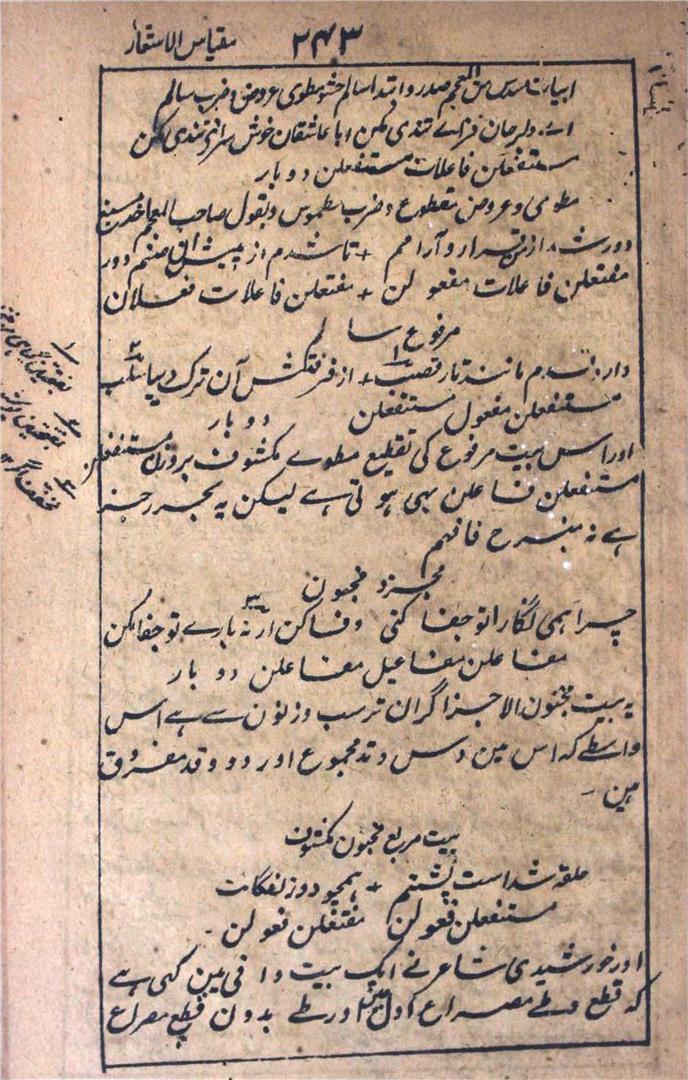 ۲۴۳ مقیاس الاشعار
ابیات مسدس من المعجم صدر و ابتدا سالم حشو مطوی عروض و ضرب سالم
اے دلبر جان فزاے تندی مکن با عاشقان خوش سراے تندی مکن
مستفعلن فاعلات مستفعلن دو بار
مطوی و عروض مقطوع و ضرب مطموس و بقول صاحب المعجم
دور شد از من قرار و آرامم + تا شدم از پیش آن صنم دور
مفتعلن فاعلات مفعولن + مفتعلن فاعلات فعلان
مرفوع سالم
دارد شدم مانند تار قصب + از فرقتش آن ترک دیبا سلب
مستفعلن مفعول مستفعلن دو بار
اور اس بیت مرفوع کی تقطیع مطوے مکشوف بروزن مستفعلن
مستفعلن فاعلن بہی ہوتی ہے لیکن یہ بحر رجز
ہے نہ منسرح فافہم
مخبون
چرا ہمی نگارا تو جفا کنی وفا کن ار نہ بارے تو جفا مکن
مفاعلن مفاعیل مفاعلن دو بار
یہ بیت مخبون الاجزا گران ترسب وزنون سے ہے اس
واسطے کہ اس مین دس وتد مجموع اور دو وتد مفروق
ہین ۔
بیت مربع مخبون مکشوف
حلقہ شداست پشتم + ہمچو دو زلفکانت
مستفعلن فعولن مفتعلن فعولن ۔
اور خورشیدی شاعر نے ایک بیت وافی مین کہی ہے
کہ قطع و طے مصراع اول مین اور طے بدون قطع مصراع